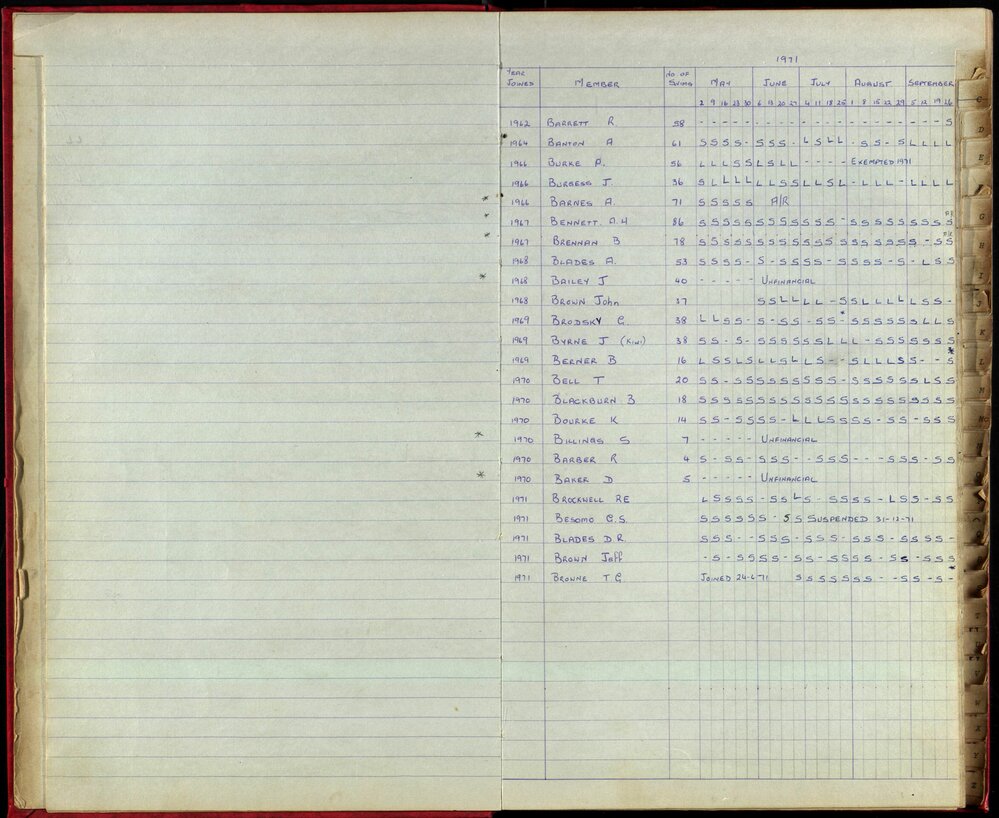 1971
YEAR JOINED MEMBER NO OF SWIMS MAY JUNE JULY AUGUST SEPTEMBER
2 9 16 23 30 6 13 20 27 4 11 18 25 1 8 15 22 29 5 12 19 26
1962 BARRETT R 58 - - - - - - - - - - - - - - - - - - - - - S
1964 BANTON A 61 S S S S - S S S - L S L L - S S - S L L L L
1966 BURKE A. 56 L L L S S L S L L - - - - EXEMPTED 1971
1966 BURGESS J. 36 S L L L L L L S S L L S L - L L L - L L L L
* 1966 BARNES A. 71 S S S S S A/R
* 1967 BENNETT A H 86 S S S S S S S S S S S S - S S S S S S S S S
* 1967 BRENNAN B 78 S S S S S S S S S S S S S S S S S S S - S S
1968 BLADES A. 53 S S S S - S - S S S S - S S S S - S - L S S
* 1968 BAILEY J 40 - - - - - UNFINANCIAL
1968 BROWN John 37 S S L L L L - S S L L L L L S S -
1969 BRODSKY G. 38 L L S S - S - S S - S S - S S S S S S L L S
1969 BYRNE J (KINI) 38 S S - S - S S S S S S L L L - S S S S S S S
1969 BERNER B 16 L S S L S L L S L L S - - S L L L S S - - S
1970 BELL T 20 S S - S S S S S S S S S - S S S S S S L S S
1970 BLACKBURN B 18 S S S S S S S S S S S S S S S S S S S S S S
1970 BOURKE K 14 S S - S S S S - L L L S S S S - S S - S S S
* 1970 BILLINGS S 7 - - - - - UNFINANCIAL
1970 BARBER R 4 S - S S - S S S - - S S S - - - S S S - S S
* 1970 BAKER D 5 - - - - - UNFINANCIAL
1971 BROCKNELL RE L S S S S - S S L S - S S S S - L S S - S S
1971 BESOMO G.S. S S S S S S S - S S SUSPENDED 31-12-71
1971 BLADES D R. S S S - - S S S - S S S - S S S - S S S S -
1971 BROWN Jeff - S - S S S S - S S - S S S S - S S - S S S
1971 BROWNE T G JOINED 24-6-71 S S S S S S S - - S S - S -